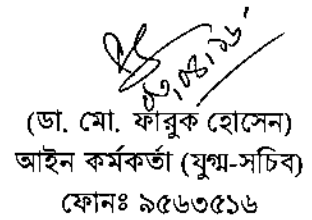 ০৩.০৪.১৬
(ডা. মো. ফারুক হোসেন)
আইন কর্মকর্তা (যুগ্ম-সচিব)
ফোনঃ ৯৫৬৩৫১৬